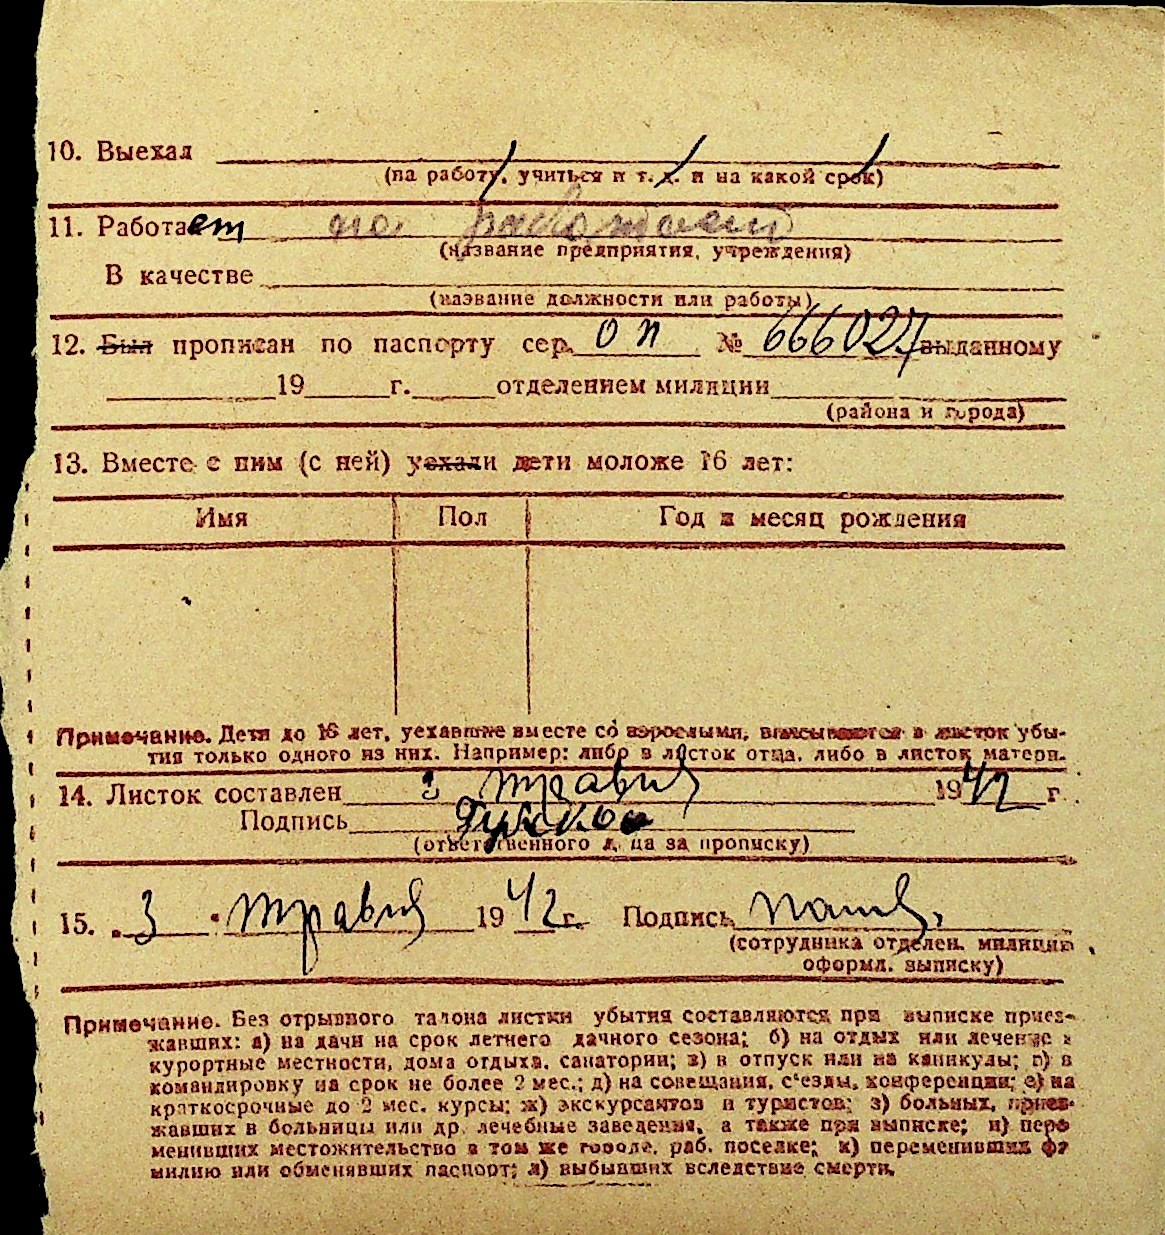 10. Выехал
(на работу, учиться и т. д. и на какой срок)
11. Работает не
(название предприятия, учреждения)
В качестве
(название должности или работы)
12. Был прописан по паспорту сер. ОП № 666027 выданному
19 г. отделением милиции
(района и города)
13. Вместе с ним (с ней) уехали дети моложе 16 лет:
Имя Пол Год и месяц рождения
Примечание. Дети до 16 лет, уехавшие вместе со взрослыми, вписываются в листок убы-
тия только одного из них. Например: либо в листок отца, либо в листок матери.
14. Листок составлен травня 1942 г.
Подпись
(ответственного лица за прописку)
15. 3 травня 1942 г. Подпись
(сотрудника отделен. милиции
оформл. выписку)
Примечание. Без отрывного талона листки убытия составляются при выписке приез-
жавших: а) на дачи на срок летнего дачного сезона; б) на отдых или лечение в
курортные местности, дома отдыха, санатории; в) в отпуск или на каникулы; г) в
командировку на срок не более 2 мес.; д) на совещания, с'езды, конференции; е) на
краткосрочные до 2 мес. курсы; ж) экскурсантов и туристов; з) больных, приез-
жавших в больницы или др. лечебные заведения, а также при выписке; и) пере
менивших местожительство в том же городе, раб. поселке; к) переменивших фа
милию или обменявших паспорт; л) выбывших вследствие смерти.